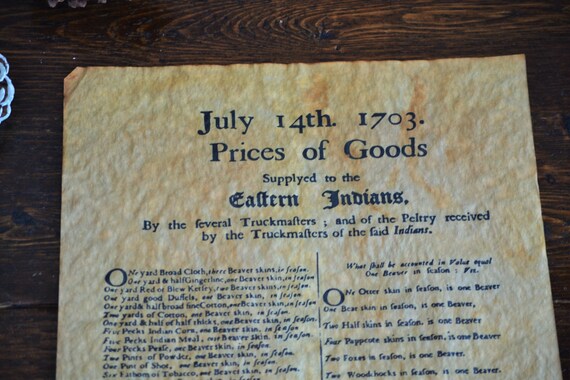 July 14th. 1703.
Prices of Goods
Supplyed to the
Eaſtern Indians,
By the ſeveral Truckmaſters ; and of the Peltry received
by the Truckmaſters of the ſaid Indians.
ONe yard Broad Cloth, three Beaver skins, in ſeaſon.
One yard & half Gingerline, one Beaver skin, in ſeaſon
One yard Red or Blew Kerſey, two Beaver skins, in ſeaſon
One yard good Duffels, one Beaver skin, in ſeaſon
One yard & half broad fine Cotton, one Beaver skin, in ſeaſon
Two yards of Cotton, one Beaver skin, in ſeaſon.
One yard & half of half thicks, one Beaver skin, in ſeaſon.
Five Pecks Indian Corn, one Beaver skin, in ſeaſon
Five Pecks Indian Meal, one Beaver skin, in ſeaſon.
Four Pecks Peaſe, one Beaver skin, in ſeaſon.
Two Pints of Powder, one Beaver skin, in ſeaſon.
One Pint of Shot, one Beaver skin, in ſeaſon.
Six Fathom of Tobacco, one Beaver skin, in ſeaſon.
What ſhall be accounted in Value equal
One Beaver in ſeaſon : Viz.
ONe Otter skin in ſeaſon, is one Beaver
One Bear skin in ſeaſon, is one Beaver,
Two Half skins in ſeaſon, is one Beaver
Four Pappcote skins in ſeaſon, is one Beaver
Two Foxes in ſeaſon, is one Beaver.
Two Woodchocks in ſeaſon, is one Beaver.